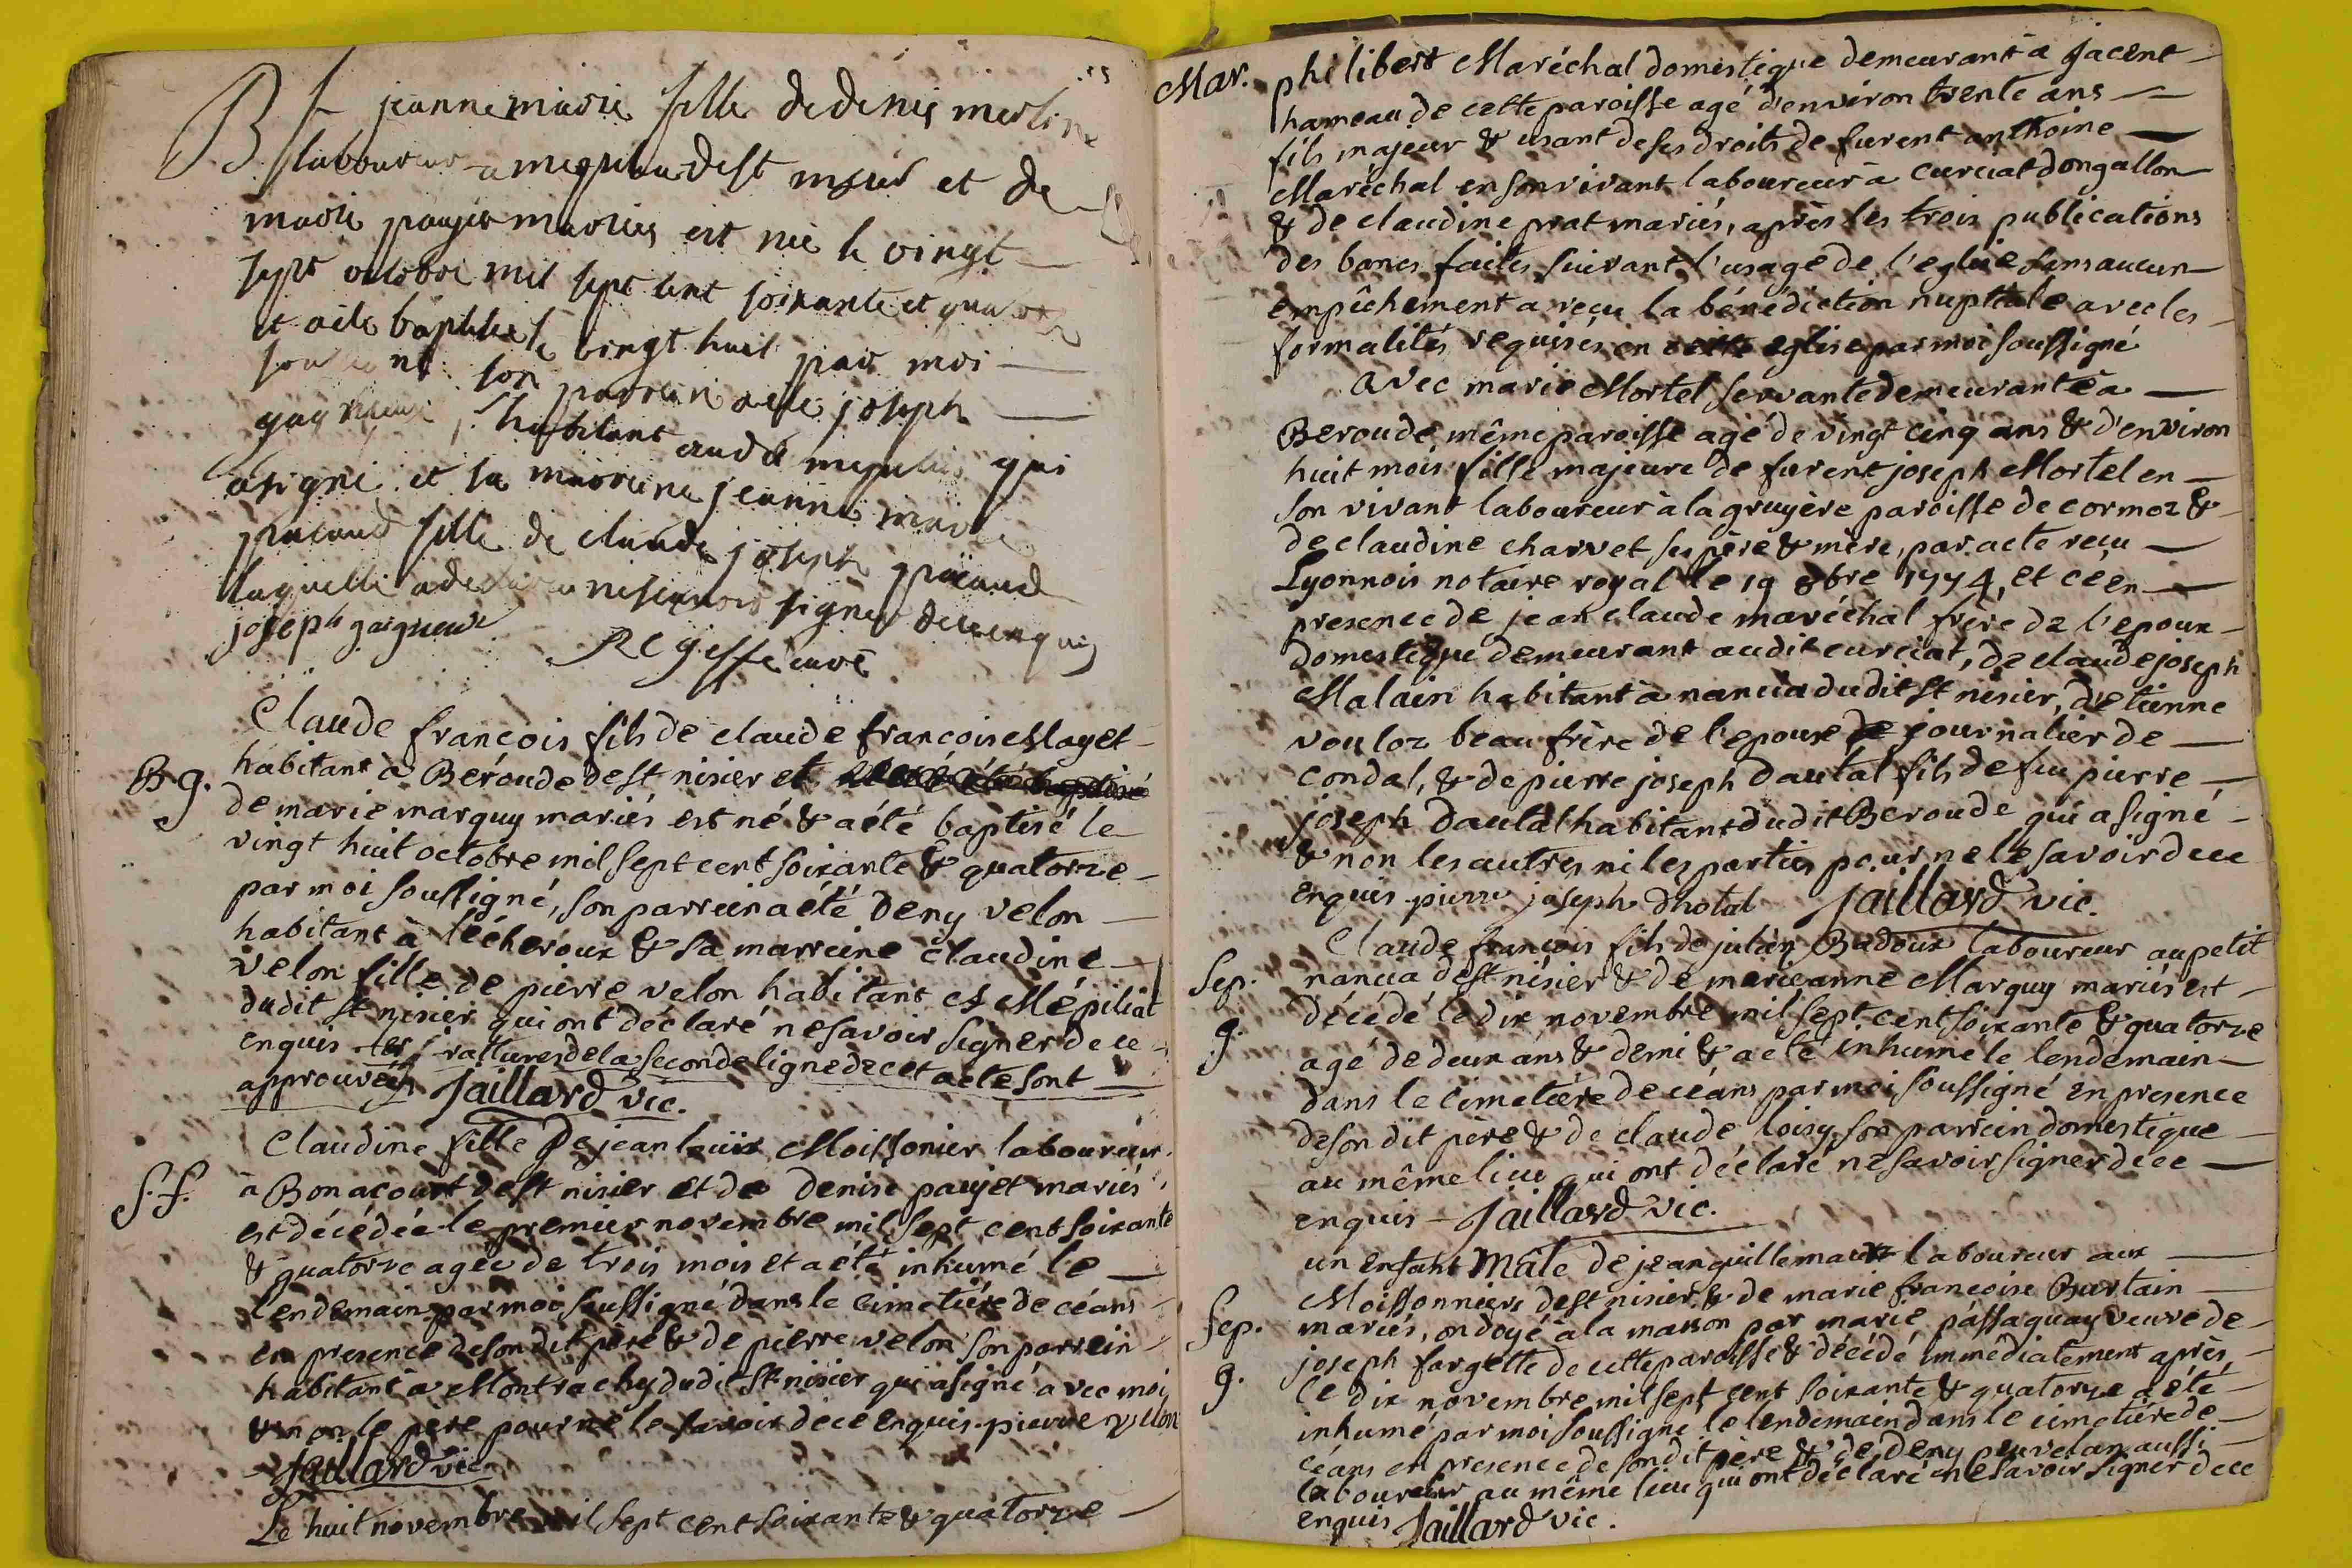 B f jeanne marie fille de denis merlin
laboureur a mepilia de st nisier et de
marie paujet mariés est née le vingt
sept octobre mil sept cent soixante et quatorze
et a été baptisée le vingt huit par moi
son parrein a été joseph
gagneux habitant audit mepilia qui
a signé et sa marreine jeanne marie
pucaud fille de claude joseph pucaud
laquelle a déclaré ne savoir signer de ce enquis
joseph gaigneux
Regeffe curé
Claude françois fils de claude francois Mayet
B g. habitant à Beroude de st nisier et
de marie marguy mariés est né & a été baptisé le
vingt huit octobre mil sept cent soixante & quatorze
par moi soussigné, son parrein a été Deny velon
habitant à lécheroux & sa marreine claudine
velon fille de pierre velon habitant à Mépiliat
dudit st nisier qui ont déclaré ne savoir signer de ce
enquis les ratures de la seconde ligne de cet acte sont
approuvées Jaillard vic.
Claudine fille de jean louis Moissonier laboureur
S. f. à Bonacourt de st nisier et de denise paujet mariés
est décédée le premier novembre mil sept cent soixante
& quatorze agée de trois mois et a été inhumé le
lendemain par moi soussigné dans le cimetière de céans
en presence de son dit père & de pierre velon son parrein
habitant à Montrachy dudit st nisier qui a signé avec moi
& non le pere pour ne le savoir de ce enquis. pierre vellon
Jaillard vic.
Le huit novembre mil sept cent soixante & quatorze
Mar. philibert Maréchal domestique demeurant à Jacent
hameau de cette paroisse agé d'environ trente ans
fils majeur & usant de ses droits de furent anthoine
Maréchal en son vivant laboureur à curciat dongallon
& de claudine prat mariés, après les trois publications
des bancs faites suivant l'usage de l'eglise sans aucun
empêchement a reçu la bénédiction nuptiale avec les
formalités requises en cette eglise par moi soussigné
avec marie Mortel servante demeurante à
Beroude même paroisse agé de vingt cinq ans & d'environ
huit mois fille majeure de furent joseph Mortel en
son vivant laboureur à la gruyère paroisse de cormoz &
de claudine charvet ses père & mère, par acte reçu
Lyonnois notaire royal le 19 8bre 1774, et ce en
presence de jean claude maréchal frère de l'epoux
domestique demeurant audit curciat, de claude joseph
Malain habitant à nancia dudit st nisier, d'etienne
vouloz beau frère de l'epouse journalier de
condal, & de pierre joseph dautal fils de feu pierre
joseph dautal habitant dudit Beroude qui a signé
& non les autres ni les parties pour ne le savoir de ce
enquis pierre joseph dhotal Jaillard vic.
Claude françois fils de julien Badoux laboureur au petit
Sep. nancia de st nisier & de marie anne Marguy mariés est
g. décédé le dix novembre mil sept cent soixante & quatorze
agé de deux ans & demi & a été inhumé le lendemain
dans le cimetière de céans par moi soussigné en presence
de son dit père & de claude loisy son parrein domestique
au même lieu qui ont déclaré ne savoir signer de ce
enquis Jaillard vic.
un enfant mâle de jean guillemaut laboureur aux
Moissonniers de st nisier & de marie françoise Burtain
Sep. mariés, ondoyé à la maison par marie passaquay veuve de
g. joseph fargette de cette paroisse & décédé immédiatement après
le dix novembre mil sept cent soixante & quatorze a été
inhumé par moi soussigné le lendemain dans le cimetière de
céans en presence de son dit père & de deny peuvelan aussi
laboureur au même lieu qui ont déclaré ne savoir signer de ce
enquis Jaillard vic.